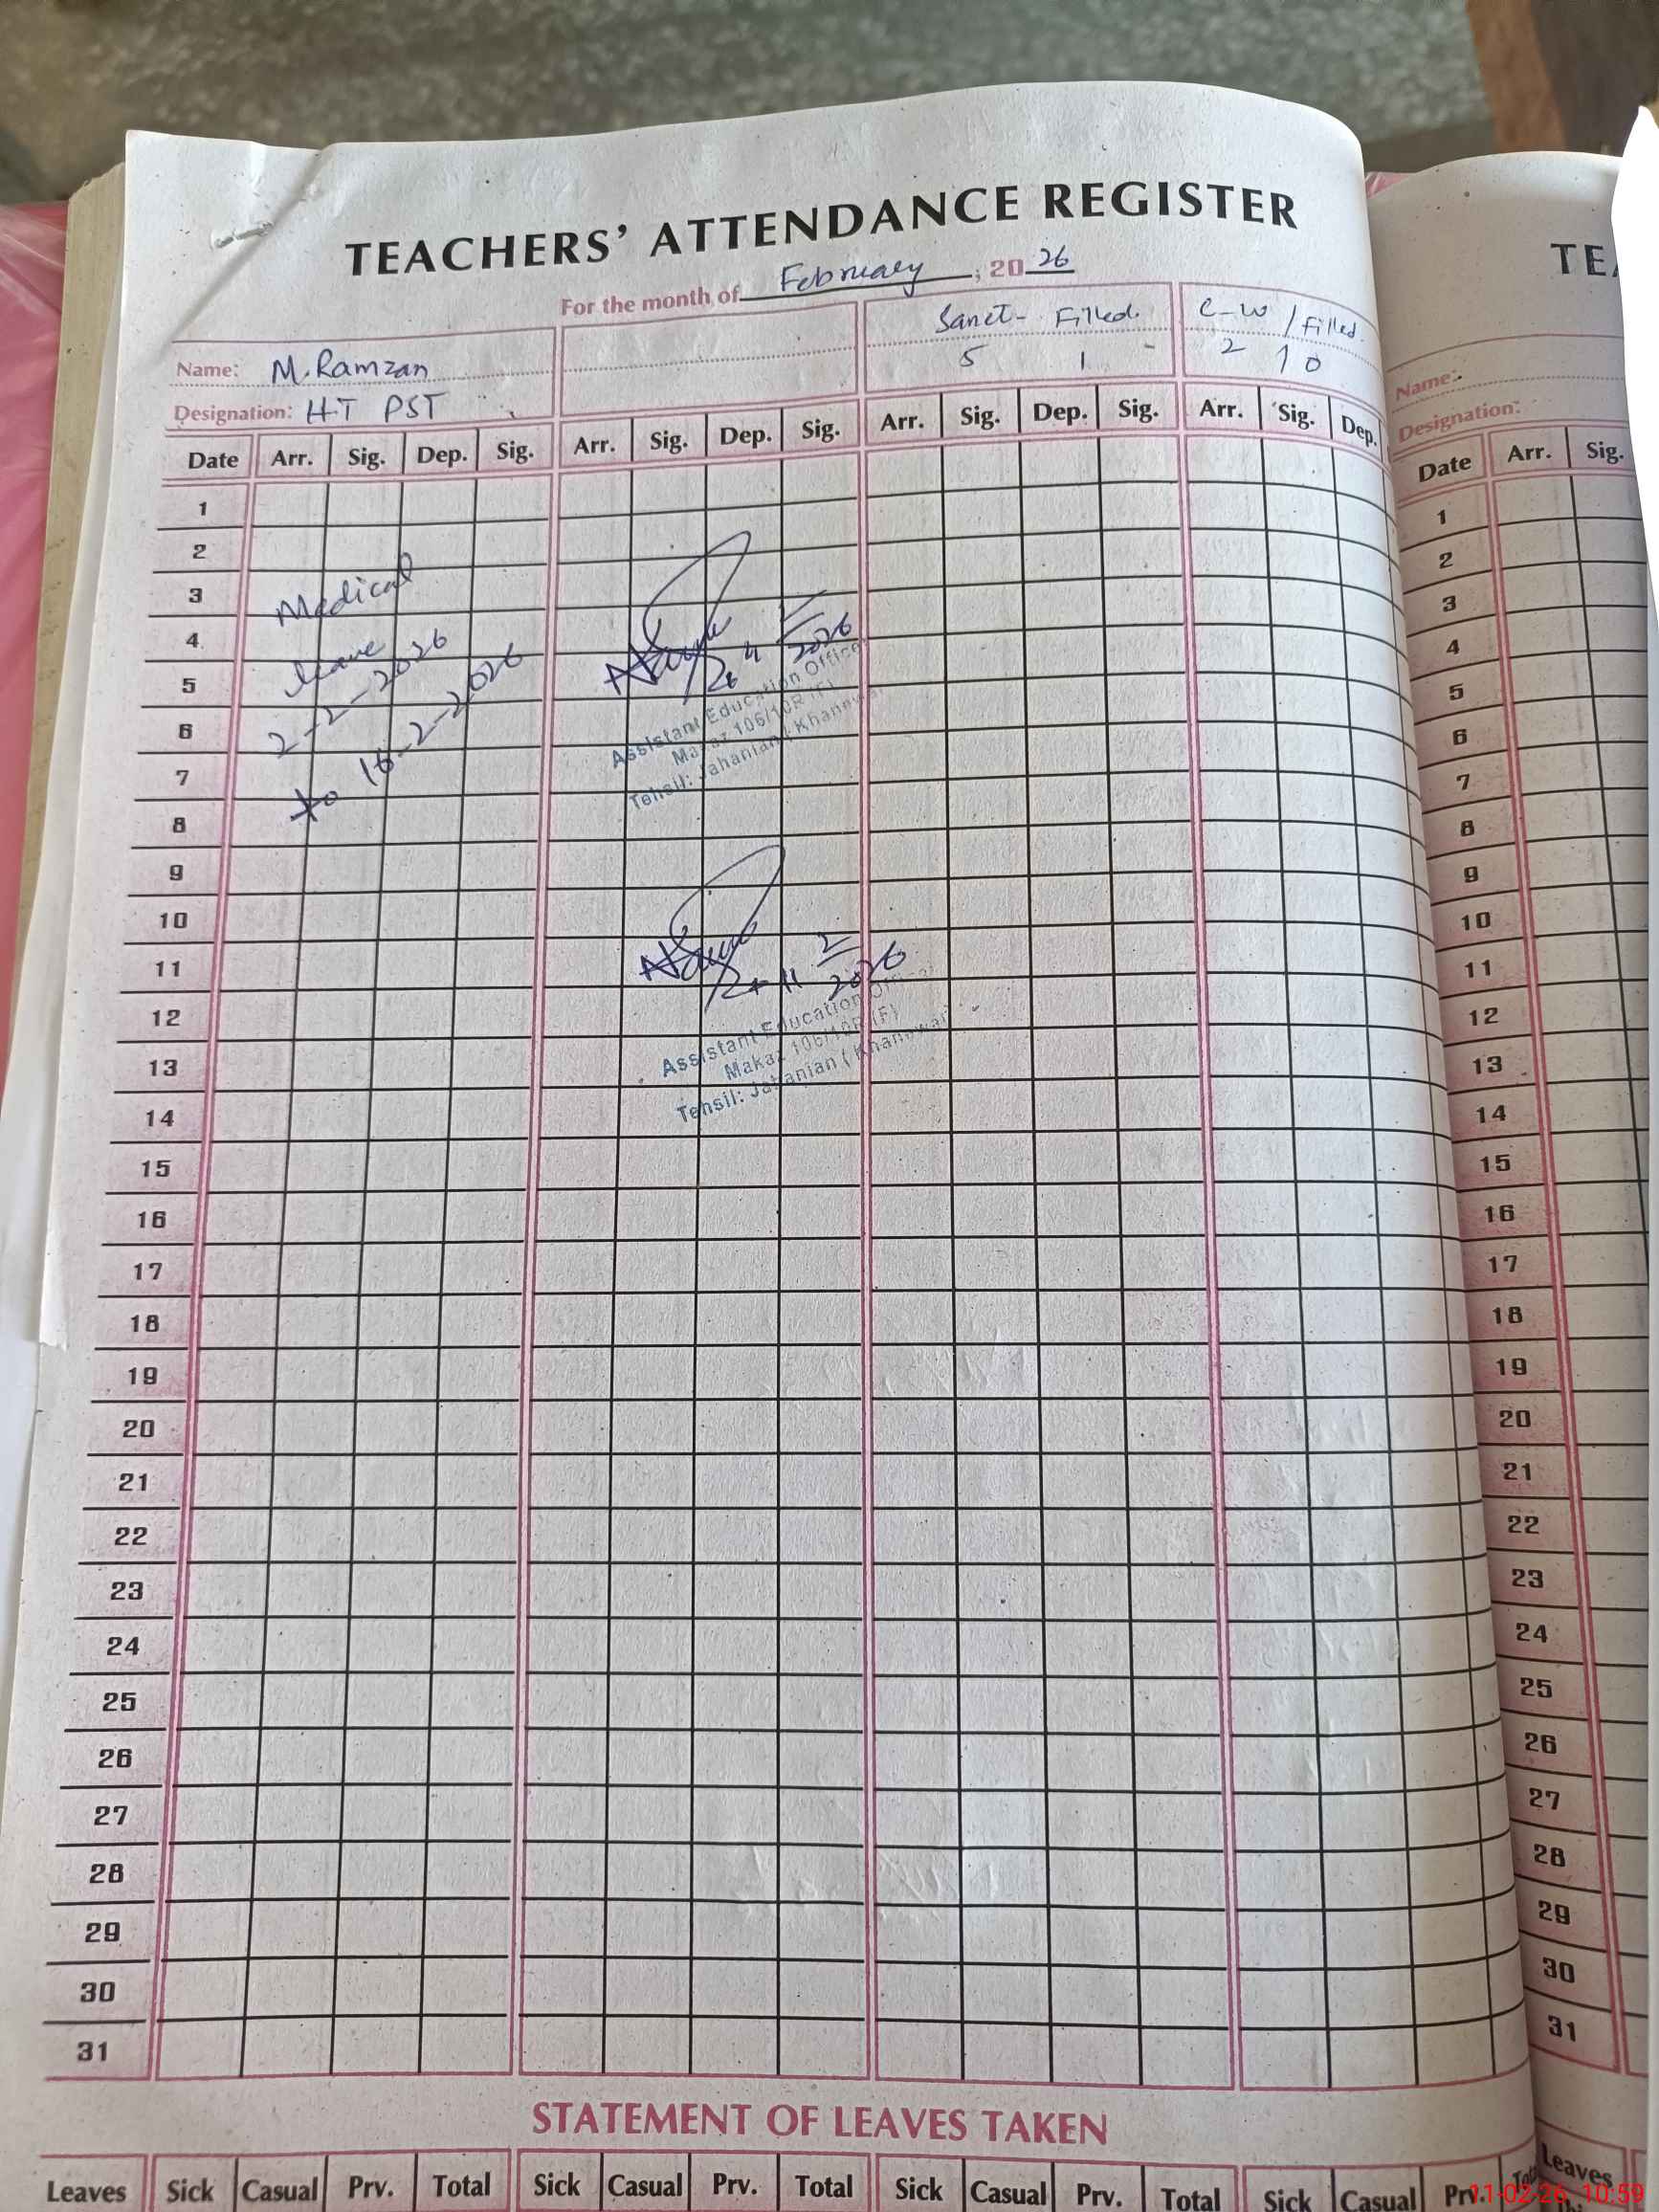 TEACHERS' ATTENDANCE REGISTER
For the month of February, 20 26
Name: M. Ramzan
Designation: H-T PST
Sanct- Filled.
5 1
C-W / Filled.
2 / 0
Date Arr. Sig. Dep. Sig. Arr. Sig. Dep. Sig. Arr. Sig. Dep. Sig. Arr. Sig. Dep.
1
2
3
4
5
6
7
8
9
10
11
12
13
14
15
16
17
18
19
20
21
22
23
24
25
26
27
28
29
30
31
Medical
leave
2-2-2026
to 16-2-2026
2026
Assistant Education Office
Makaz 106/10R (F)
Tehsil: Jahanian ( Khanewa
11 2
2026
Assistant Education Off
Makaz 106/10R (F)
Tehsil: Jahanian ( Khanewal
STATEMENT OF LEAVES TAKEN
Leaves Sick Casual Prv. Total Sick Casual Prv. Total Sick Casual Prv. Total Sick Casual Prv.
TEA
Name:
Designation:
Date Arr. Sig.
1
2
3
4
5
6
7
8
9
10
11
12
13
14
15
16
17
18
19
20
21
22
23
24
25
26
27
28
29
30
31
Leaves
11-02-26, 10:59